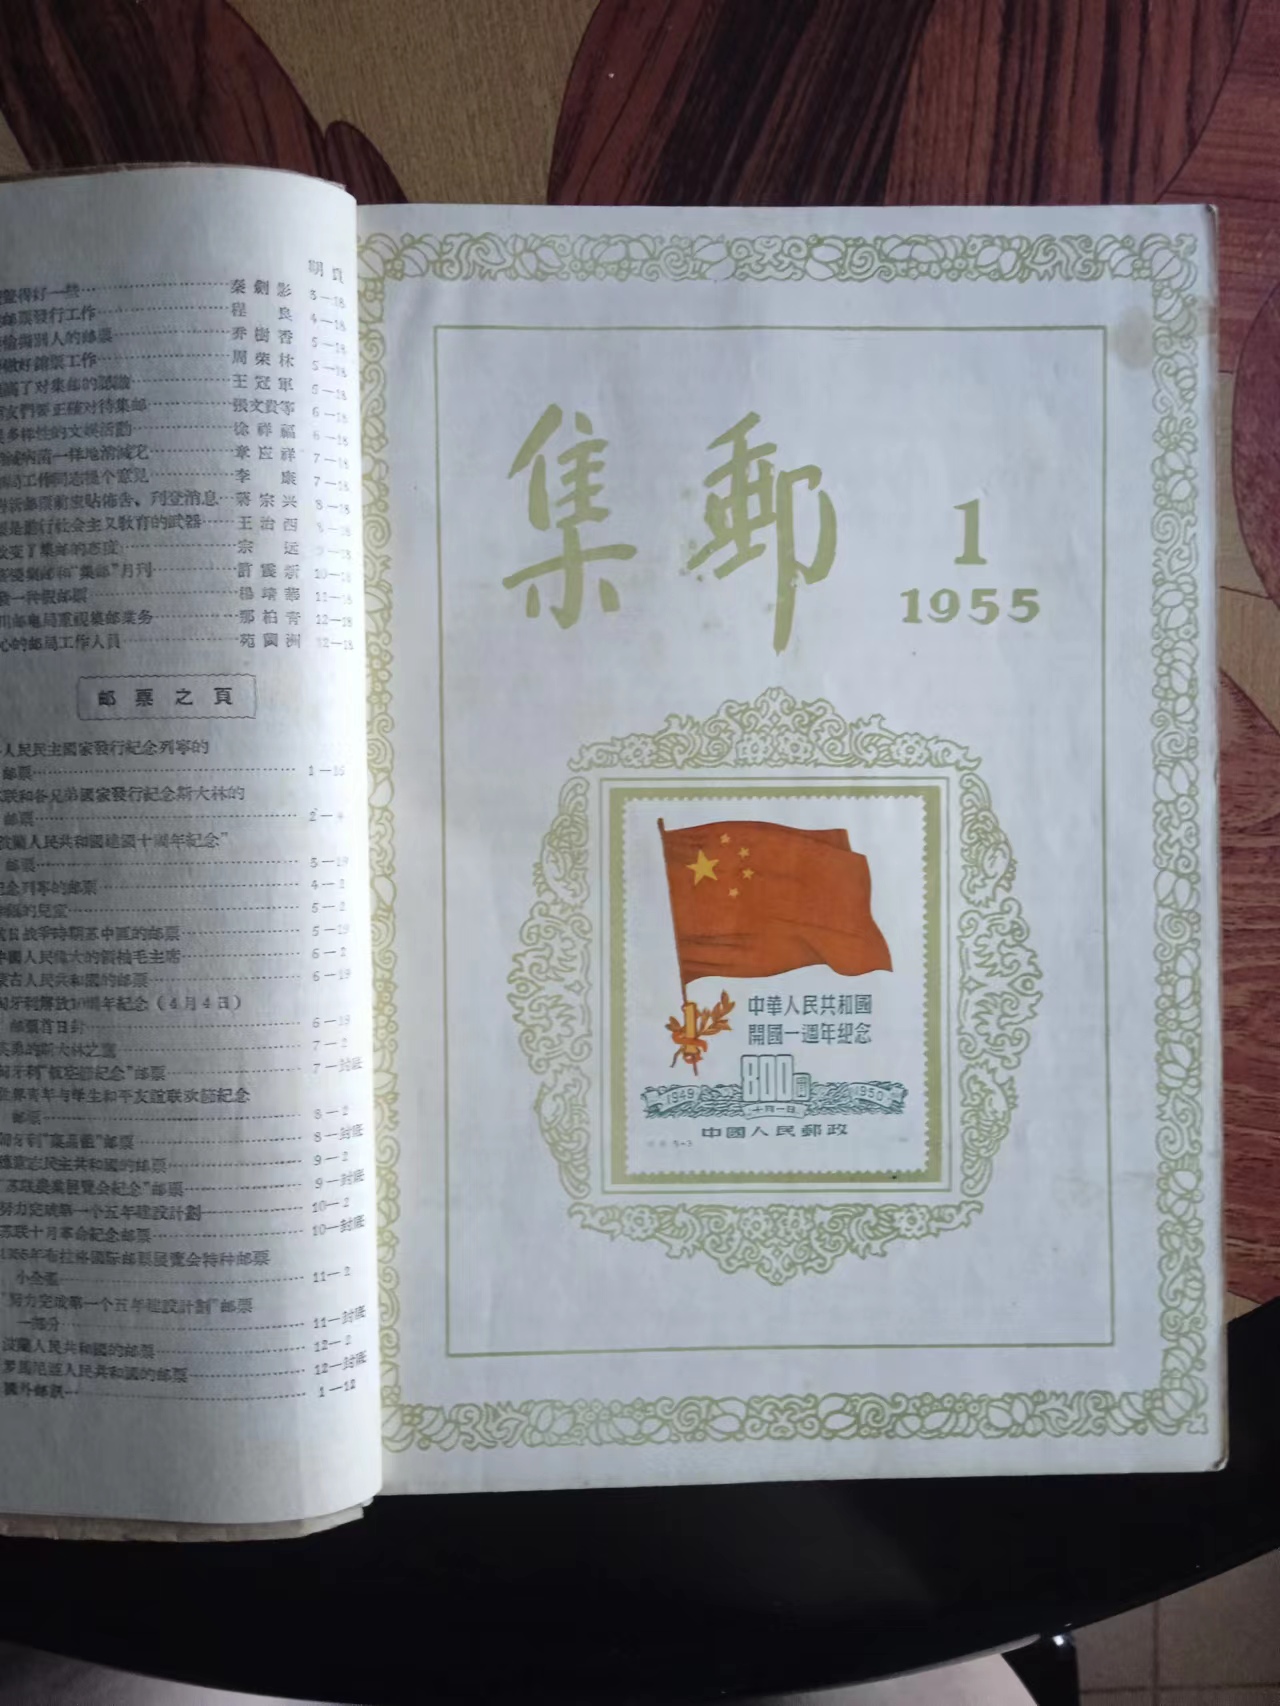 期 頁
秦劍影 3—18
邮票發行工作 程良 4—18
偷竊別人的邮票 乔樹香 5—18
周荣林 5—18
高了对集邮的認識 王冠軍 5—18
友們要正確对待集邮 張文貴等 6—18
多样性的文娱活动 徐祥福 6—18
病菌一样地消滅它 章应祥 7—18
工作同志提个意見 李康 7—18
蔣宗兴 8—18
是進行社会主义教育的武器 王治西 8—18
改变了集邮的态度 宗远 9—18
集邮和“集邮”月刊 許震新 10—18
一种假邮票 楊靖華 11—18
川邮电局重視集邮業务 那柏青 12—18
心的邮局工作人員 苑蘭洲 12—18
邮票之頁
人民民主國家發行紀念列寧的
邮票 1—16
联和各兄弟國家發行紀念斯大林的
邮票 2—
波蘭人民共和國建國十周年紀念”
邮票 3—19
念列寧的邮票 4—2
的兒童 5—2
抗日战爭時期苏中區的邮票 5—19
中國人民偉大的領袖毛主席 6—2
蒙古人民共和國的邮票 6—19
匈牙利解放10周年紀念（4月4日）
邮票首日封 6—19
英勇的斯大林之鷹 7—2
匈牙利“航空節紀念”邮票 7—封底
世界青年与学生和平友誼联欢節紀念
邮票 8—2
匈牙利 邮票 8—封底
德意志民主共和國的邮票 9—2
“苏联農業展覽会紀念”邮票 9—封底
努力完成第一个五年建設計劃 10—2
苏联十月革命紀念邮票 10—封底
1955年布拉格國际邮票展覽会特种邮票
小全張 11—2
“努力完成第一个五年建設計劃”邮票
一部分 11—封底
波蘭人民共和國的邮票 12—2
罗馬尼亞人民共和國的邮票 12—封底
國外邮訊 1—12
集郵
1
1955
中華人民共和國
開國一週年紀念
800圓
1949 1950
十月一日
中國人民郵政
5-3